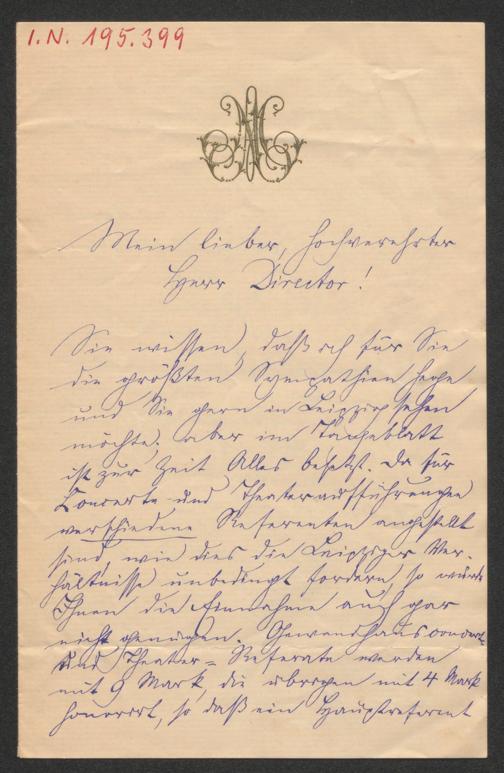 I.N. 195.399
Mein lieber, hochverehrter
Herr Director!
Sie wissen, daß ich für Sie
die größten Sympathien hege
und Sie gern in Leipzig sehen
möchte. Aber im Tageblatt
ist zur Zeit Alles besetzt. Da für
Concerte und Theateraufführungen
verschiedene Referenten angestellt
sind, wie dies die Leipziger Ver-
hältnisse unbedingt fordern, so würde
Ihnen die Einnahme auch gar
nicht genügen. Gewandhausconcert-
und Theater-Referate werden
mit 9 Mark, die übrigen mit 4 Mark
honorirt, so daß ein Hauptreferent